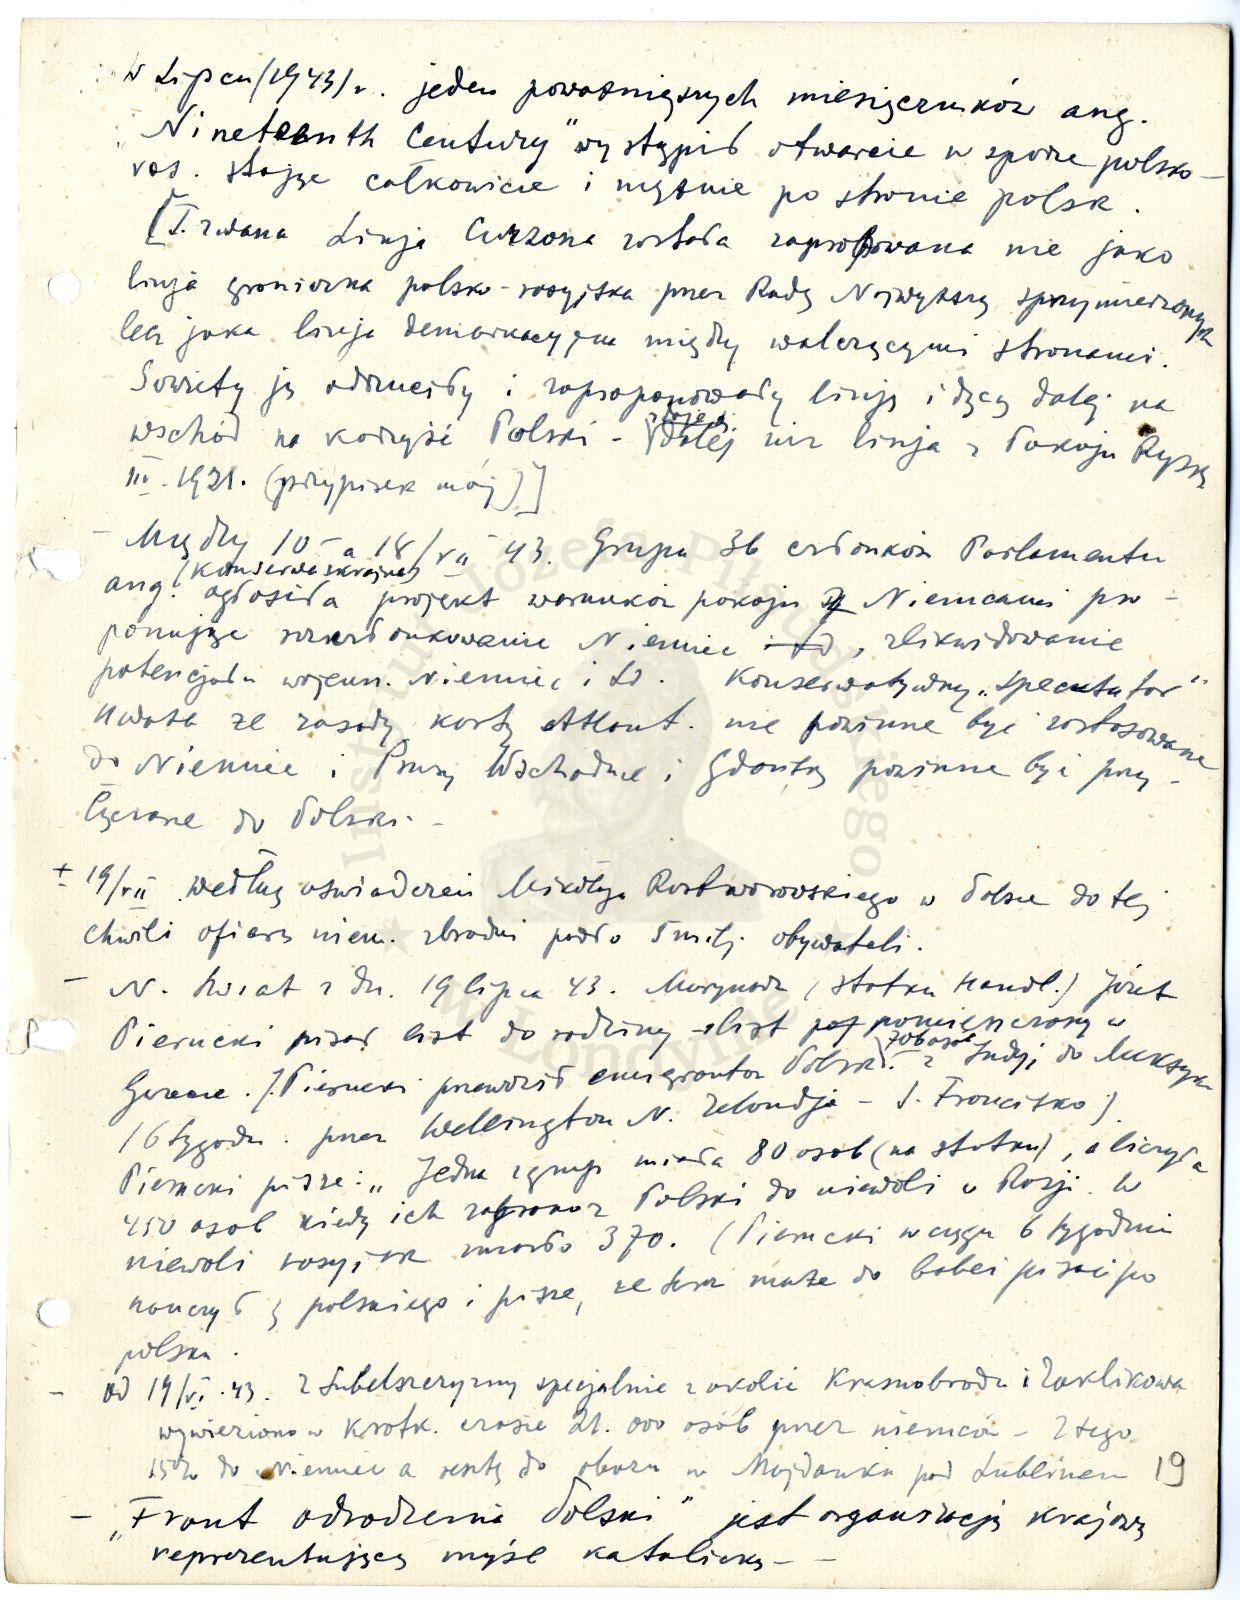 W Lipcu (1943) r. jeden poważniejszych miesięczników ang.
„Nineteenth Century” wystąpił otwarcie w sporze polsko-
ros. stając całkowicie i mężnie po stronie polsk.
[T. zwana Linja Curzona została zaproponowana nie jako
linja graniczna polsko-rosyjska przez Radę Najwyższą sprzymierzonych
lecz jako linja demarkacyjna między walczącymi stronami.
Sowiety ją odrzuciły i zaproponowały linję idącą dalej na
wschód na korzyść Polski - dalej niż linja z Pokoju Rysk
III. 1921. (przypisek mój)]
- Między 10 - a 18/VII 43. Grupa 36 członków Parlamentu
ang. (Konserwa skrajna) ogłosiła projekt warunków pokoju z Niemcami pro-
ponując rozczłonkowanie Niemiec, zlikwidowanie
potencjału wojenn. Niemiec i td. Konserwatywny „Spectator”
uważa że zasady karty Atlant. nie powinne być zastosowane
do Niemiec i Prusy Wschodnie i Gdańsk powinne być przy-
łączone do Polski. -
± 19/VII według oświadczeń Mikołaja Rostworowskiego w Polsce do tej
chwili ofiarą niem. zbrodni padło 5 milj. obywateli.
- N. Świat z dn. 19 lipca 43. Marynarz (statku Handl.) Józef
Piernecki pisał list do rodziny - list pomieszczony w
Gwarze. /. Piernecki przewoził emigrantów Polsk. 706 osób z Indji do Meksyku
16 tygodn. przez Wellington N. Zelandja - S. Francisko).
Piernecki pisze: „Jedna z grup miała 80 osób (na statku), a liczyła
450 osób kiedy ich z Polski do niewoli w Rosji. W
niewoli rosyjsk zmarło 370. (Piernecki w ciągu 6 tygodni
nauczył się polskiego i pisze, że teraz może do babci pisać po
polsku.
- od 19/VI. 43. z Lubelszczyzny specjalnie z okolic Krasnobrodu i Zaklikowa
wywieziono w krótk. czasie 21.000 osób przez niemców - z tego
15% do Niemiec a resztę do obozu w Majdanku pod Lublinem 19
- „Front odrodzenia Polski” jest organizacją krajową
reprezentującą myśl katolicką - -
Instytut Józefa Piłsudskiego
w Londynie